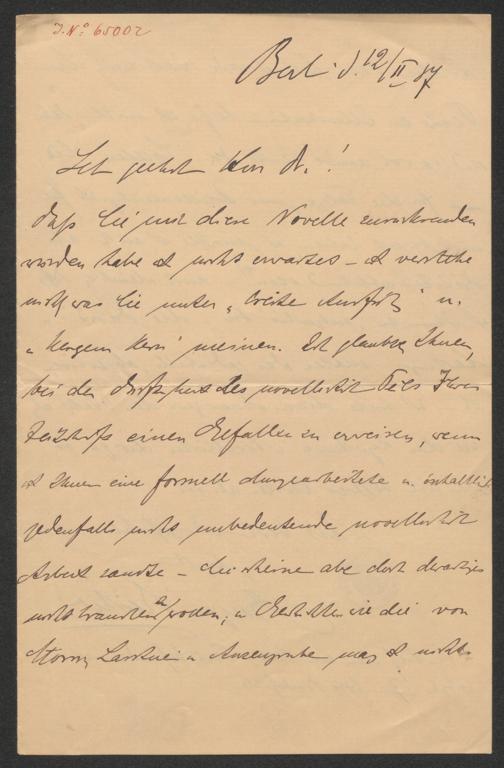 J. No 65002
Berl. d. 12/II 87
Sehr geehrter Herr Dr.!
Daß Sie mir diese Novelle zurücksenden
würden habe ich nicht erwartet – ich verstehe
nicht was Sie unter „breite " u.
„ " meinen. Ich glaubte Ihnen,
bei der des novellistischen Teils Ihrer
Zeitschrift einen Gefallen zu erweisen, wenn
ich Ihnen eine formell durchgearbeitete u. inhaltlich
jedenfalls nicht unbedeutende novellistische
Arbeit sandte – Sie scheinen aber doch derartiges
nicht brauchen zu wollen, u. Geschichten wie die von
Storm, u. Anzengruber mag ich nicht